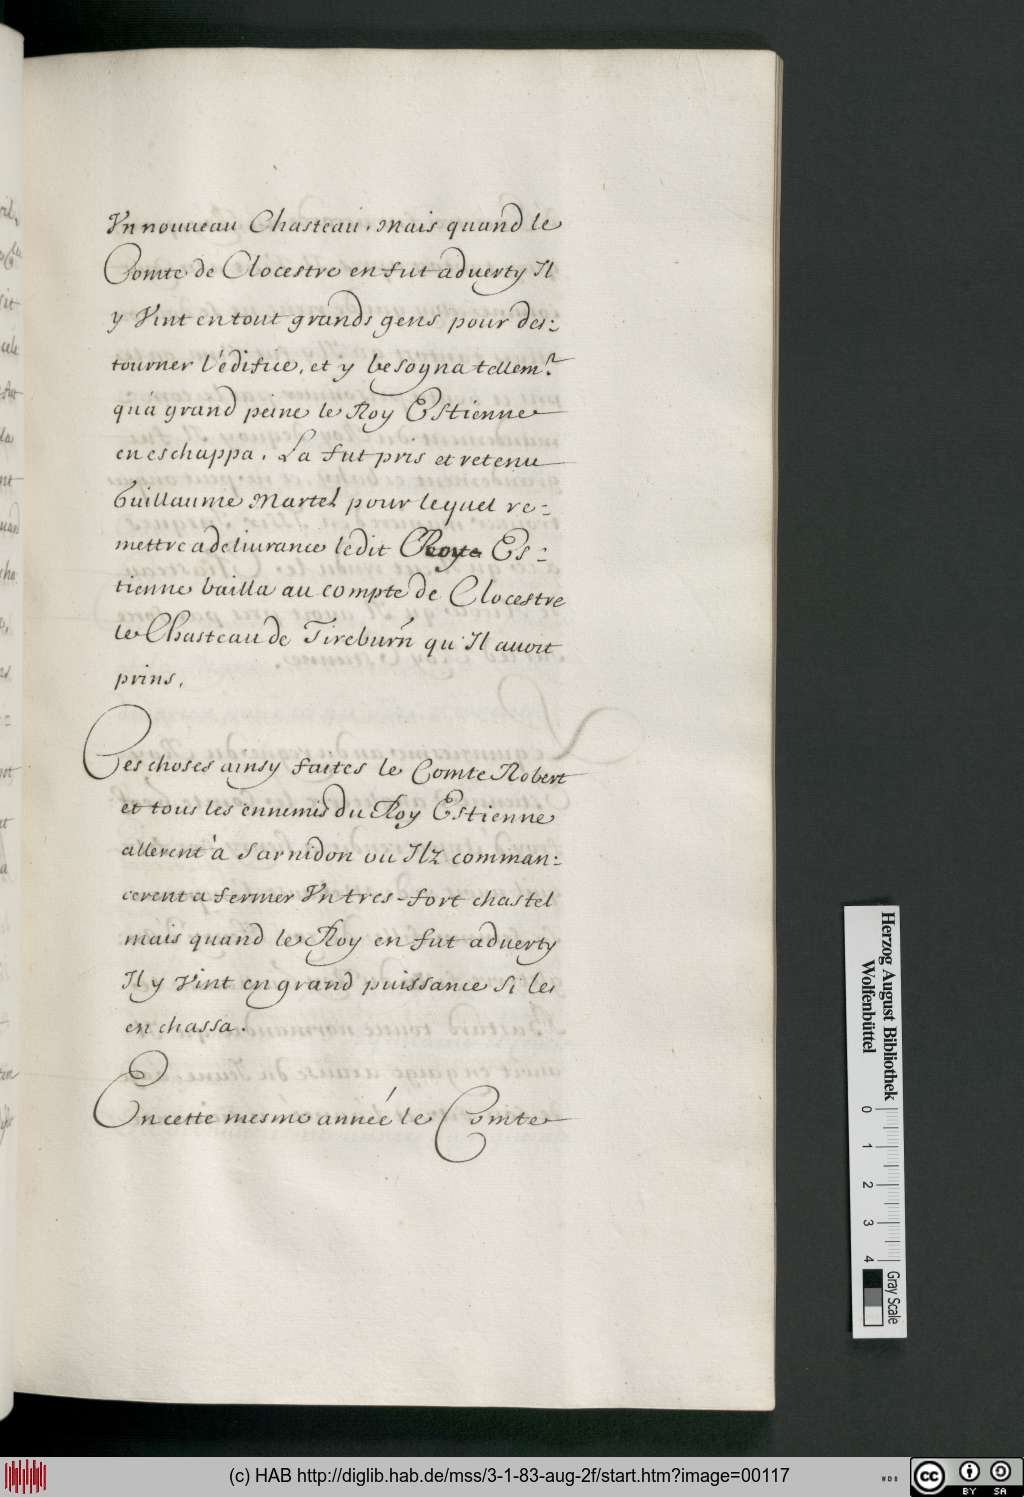 Vn nouueau Chasteau, mais quand le
Comte de Clocestre en fut aduerty Il
y Vint en tout grands gens pour des=
tourner l'édifice, et y besoyna tellem.t
qu'a grand peine le Roy Estienne
en eschappa. La fut pris et retenu
Guillaume Martel pour lequel re=
mettre a deliurance ledit Roy Es=
tienne bailla au compte de Clocestre
le Chasteau de Tireburn qu'Il auoit
prins.
Ces choses ainsy faites le Comte Robert
et tous les ennemis du Roy Estienne
allerent à Sarnidon ou Ilz comman=
cerent a fermer Vn tres-fort chastel
mais quand le Roy en fut aduerty
Il y Vint en grand puissance Si les
en chassa.
En cette mesme année le Comte
Herzog August Bibliothek
Wolfenbüttel
0 1 2 3 4
Gray Scale
(c) HAB http://diglib.hab.de/mss/3-1-83-aug-2f/start.htm?image=00117
WDB
cc BY SA